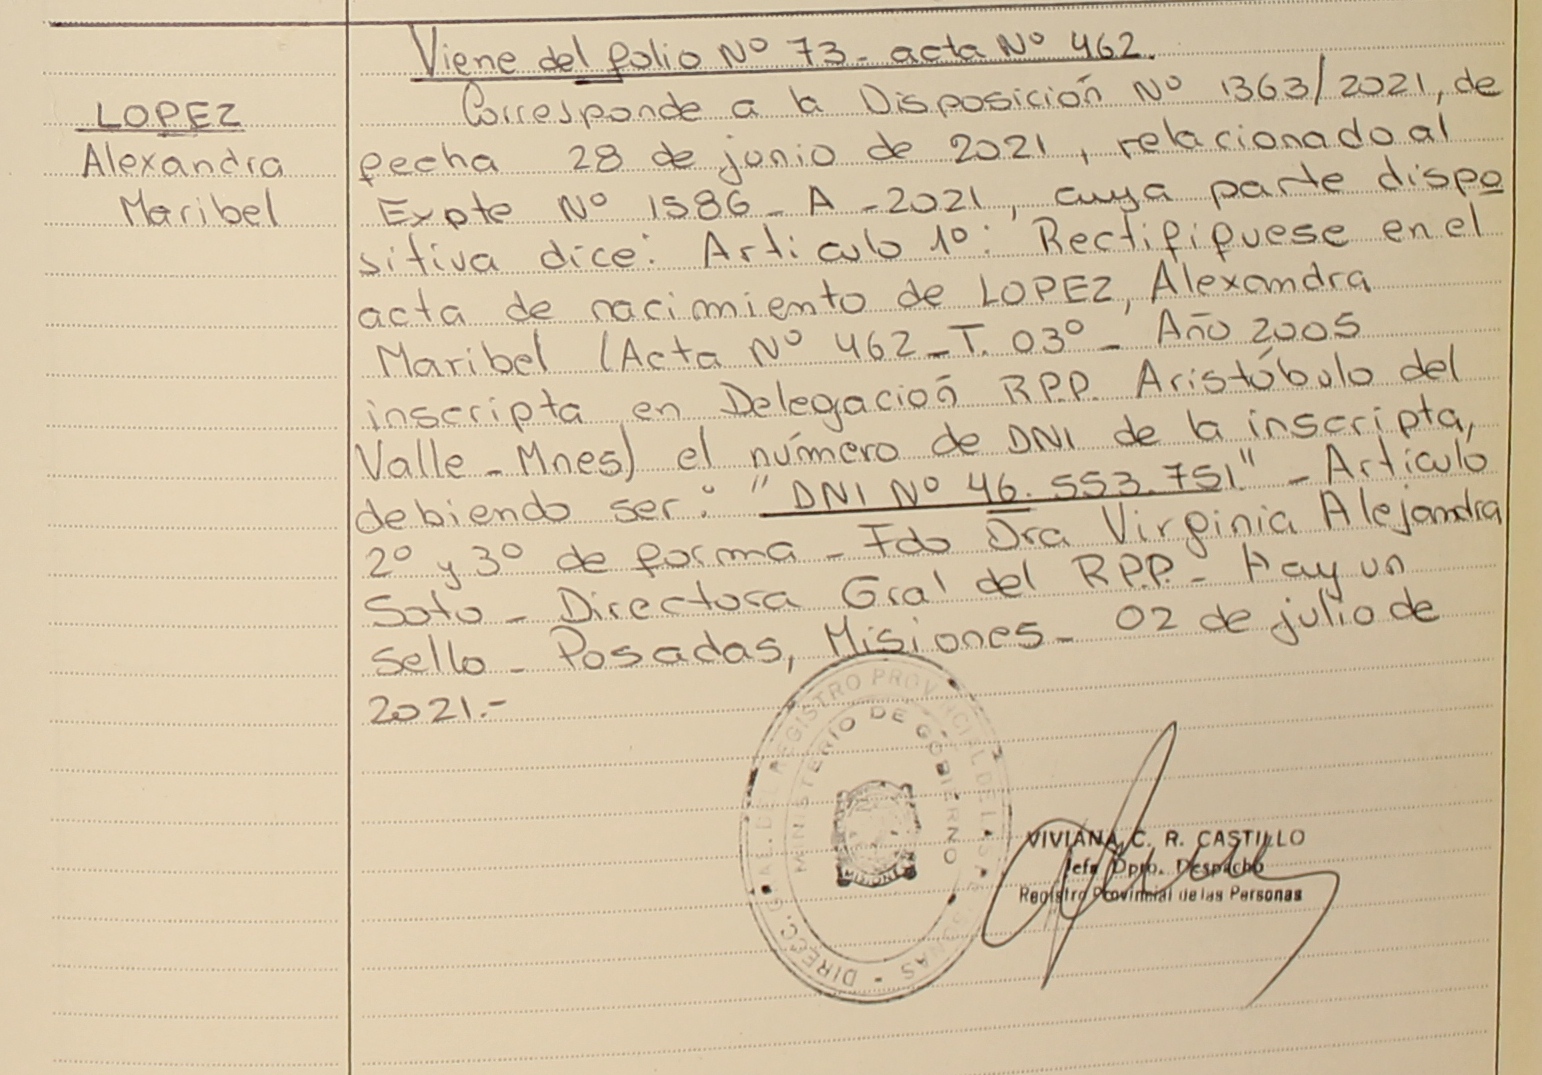 Viene del folio Nº 73- acta Nº 462.
LOPEZ
Alexandra
Maribel
Corresponde a la Disposición Nº 1363/2021, de
fecha 28 de junio de 2021, relacionado al
Expte Nº 1586 - A - 2021, cuya parte dispo
sitiva dice: Artículo 1º: Rectifífuese en el
acta de nacimiento de LOPEZ, Alexandra
Maribel (Acta Nº 462 - T. 03º - Año 2005
inscripta en Delegación R.P.P. Aristóbulo del
Valle - Mnes) el número de DNI de la inscripta,
debiendo ser: "DNI Nº 46.553.751" - Artículo
2º y 3º de forma - Fdo Dra Virginia Alejandra
Soto - Directora Gral del R.P.P. - Hay un
sello - Posadas, Misiones - 02 de julio de
2021.-
DIRECC. GRAL. DEL REGISTRO PROVINCIAL DE LAS PERSONAS -
MINISTERIO DE GOBIERNO
MISIONES
VIVIANA C. R. CASTILLO
Jefa Dpto. Despacho
Registro Provincial de las Personas